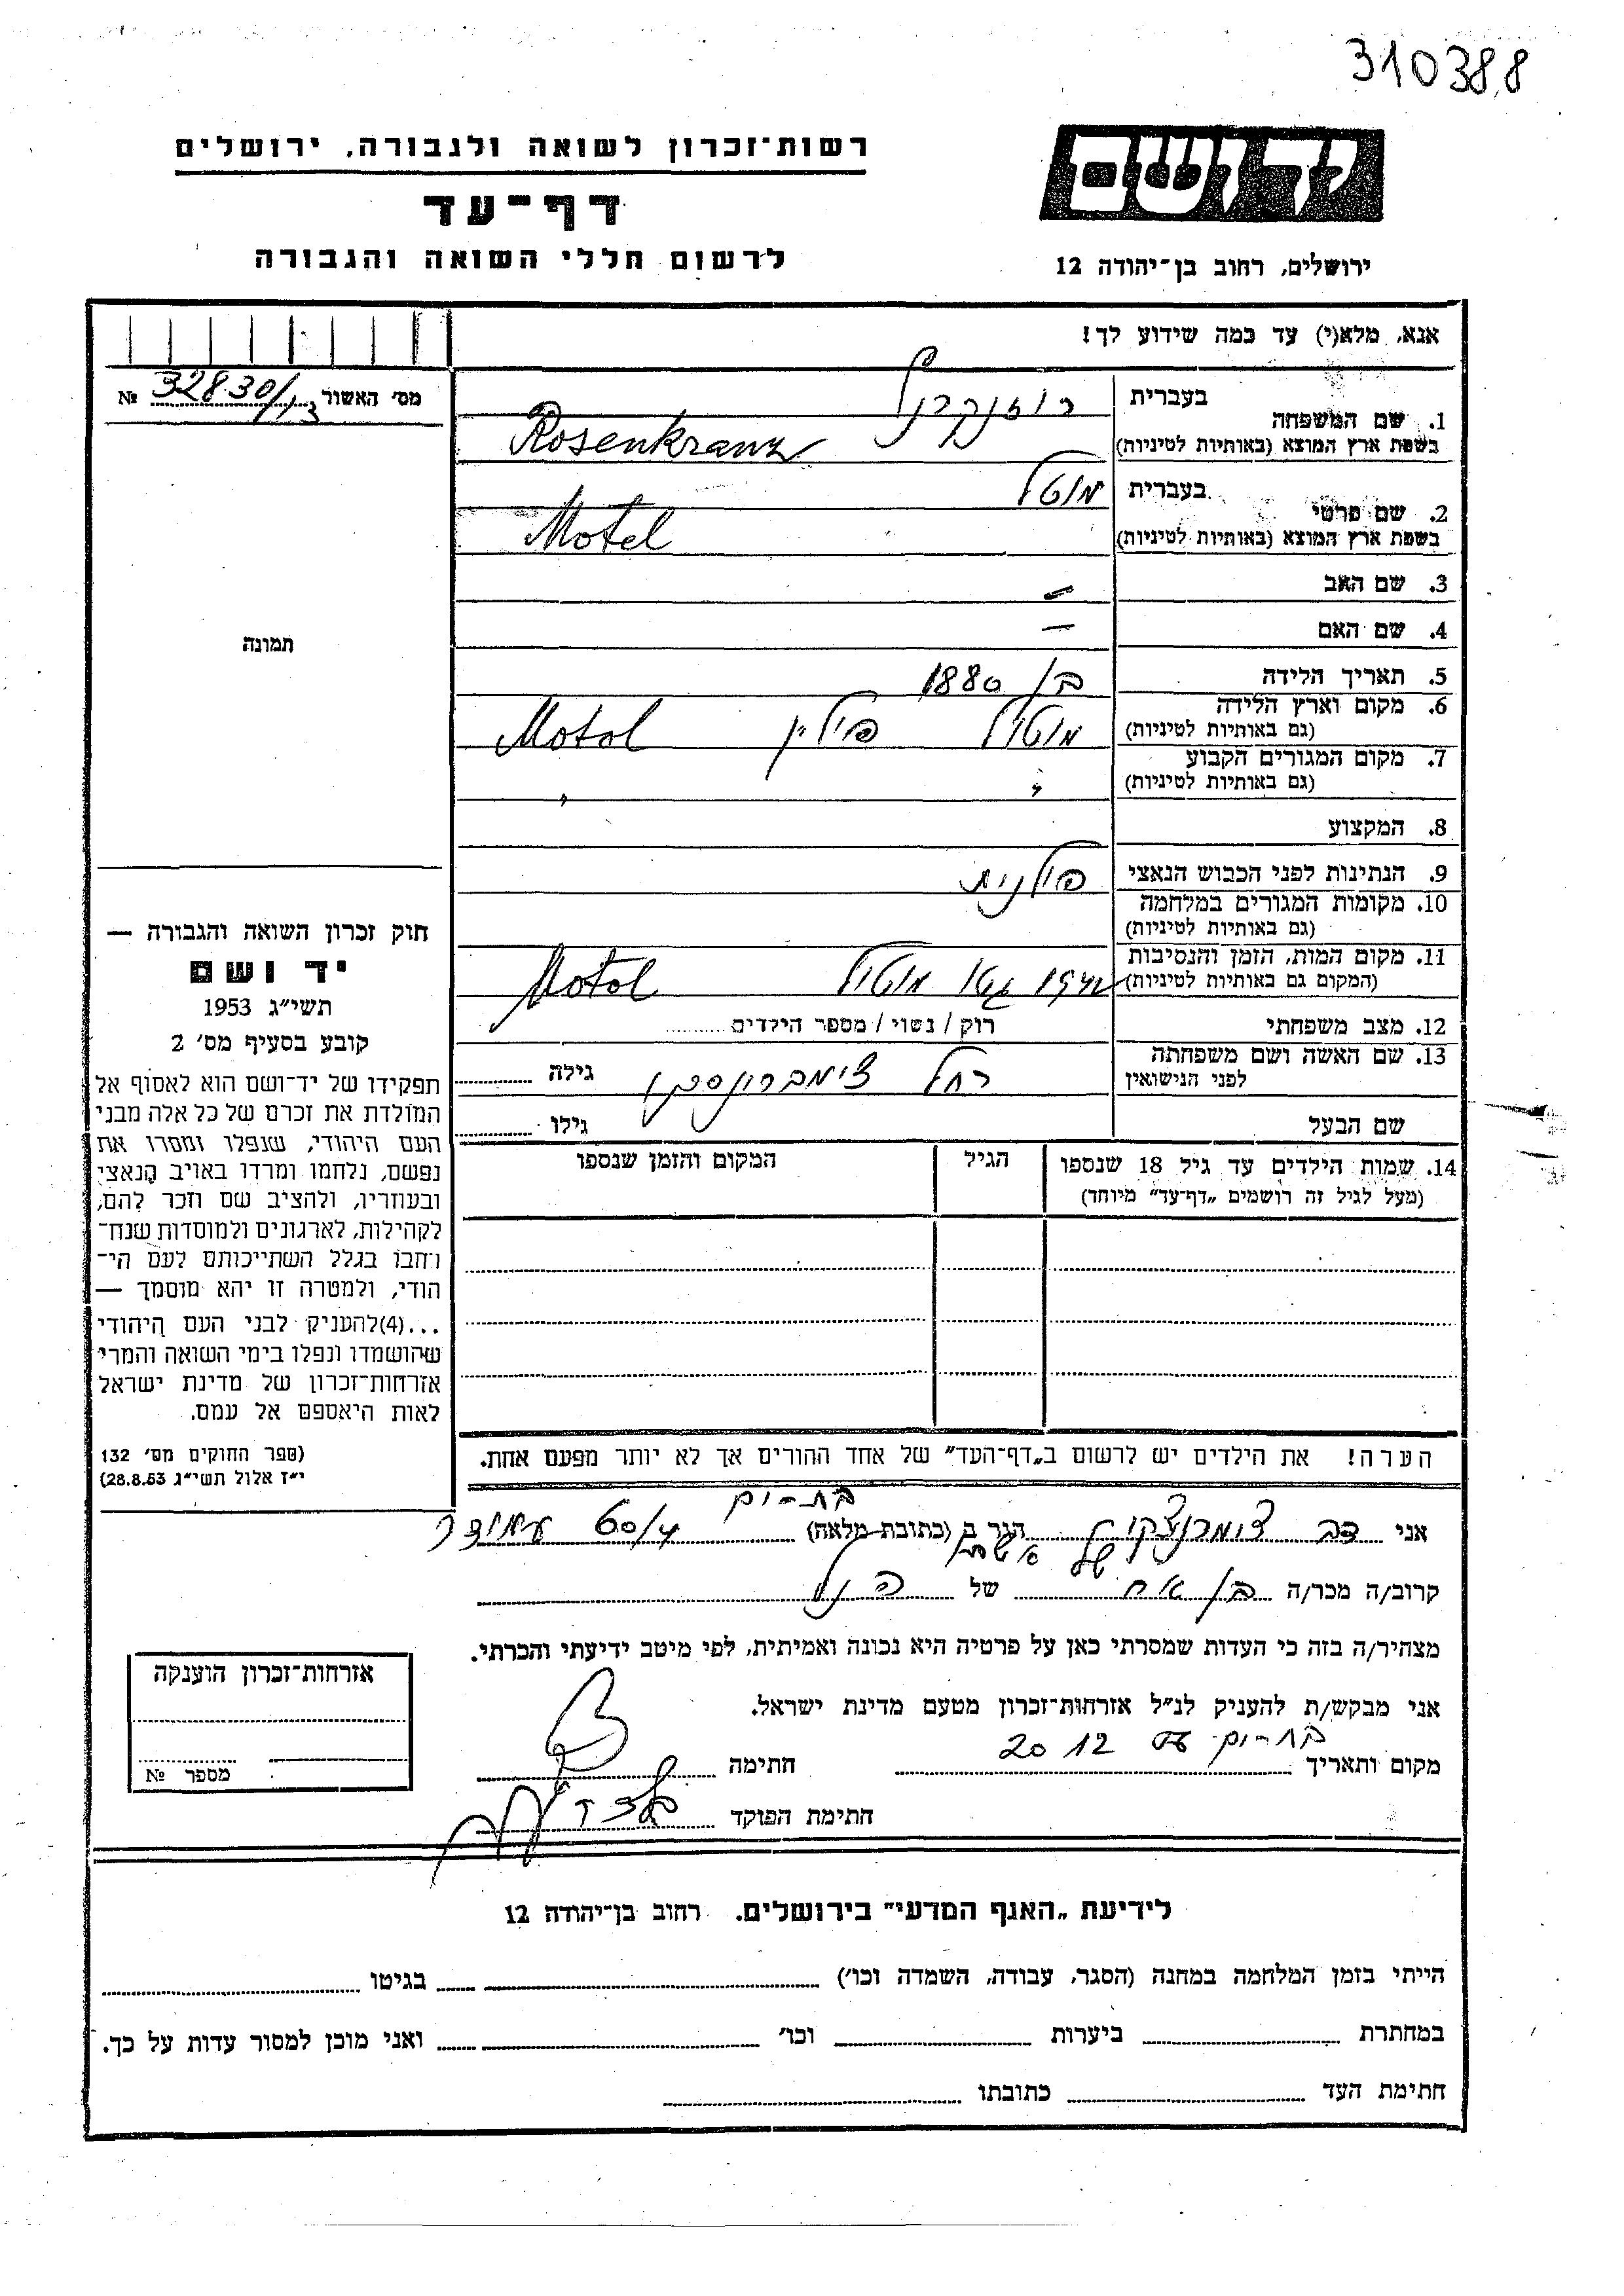 310388
רשות־זכרון לשואה ולגבורה, ירושלים
דף־עד
לרשום חללי השואה והגבורה
ידושם
ירושלים, רחוב בן־יהודה 12
אנא, מלא(י) עד כמה שידוע לך!
מס׳ האשור 32830/13 №
1. שם המשפחה בעברית רוזנקרנץ
בשפת ארץ המוצא (באותיות לטיניות) Rosenkranz
2. שם פרטי בעברית מוטל
בשפת ארץ המוצא (באותיות לטיניות) Motel
3. שם האב —
4. שם האם —
5. תאריך הלידה בן 1880
6. מקום וארץ הלידה
(גם באותיות לטיניות) מוטול פולין Motol
7. מקום המגורים הקבוע
(גם באותיות לטיניות) " "
8. המקצוע
9. הנתינות לפני הכבוש הנאצי פולנית
10. מקומות המגורים במלחמה
(גם באותיות לטיניות)
11. מקום המות, הזמן והנסיבות
(המקום גם באותיות לטיניות) גטו מוטול Motol
12. מצב משפחתי רוק / נשוי / מספר הילדים
13. שם האשה ושם משפחתה
לפני הנישואין רחל גילה
שם הבעל גילו
14. שמות הילדים עד גיל 18 שנספו הגיל המקום והזמן שנספו
(מעל לגיל זה רושמים „דף־עד״ מיוחד)
הערה! את הילדים יש לרשום ב„דף־העד״ של אחד ההורים אך לא יותר מפעם אחת.
תמונה
חוק זכרון השואה והגבורה —
יד ושם
תשי״ג 1953
קובע בסעיף מס׳ 2
תפקידו של יד־ושם הוא לאסוף אל
המולדת את זכרם של כל אלה מבני
העם היהודי, שנפלו ומסרו את
נפשם, נלחמו ומרדו באויב הנאצי
ובעוזריו, ולהציב שם וזכר להם,
לקהילות, לארגונים ולמוסדות שנח־
רבו בגלל השתייכותם לעם הי־
הודי, ולמטרה זו יהא מוסמך —
...(4)להעניק לבני העם היהודי
שהושמדו ונפלו בימי השואה והמרי
אזרחות־זכרון של מדינת ישראל
לאות היאספם אל עמם.
(ספר החוקים מס׳ 132
י״ז אלול תשי״ג 28.8.53)
בת-ים
אני דב הגר ב (כתובת מלאה) 60/4
של אשתו
קרוב/ה מכר/ה בן אח של הנ״ל
מצהיר/ה בזה כי העדות שמסרתי כאן על פרטיה היא נכונה ואמיתית, לפי מיטב ידיעתי והכרתי.
אני מבקש/ת להעניק לנ״ל אזרחות־זכרון מטעם מדינת ישראל.
מקום ותאריך בת-ים 20 12 חתימה
חתימת הפוקד
אזרחות־זכרון הוענקה
מספר №
לידיעת „האגף המדעי״ בירושלים. רחוב בן־יהודה 12
הייתי בזמן המלחמה במחנה (הסגר, עבודה, השמדה וכו׳) בגיטו
במחתרת ביערות וכו׳ ואני מוכן למסור עדות על כך.
חתימת העד כתובתו